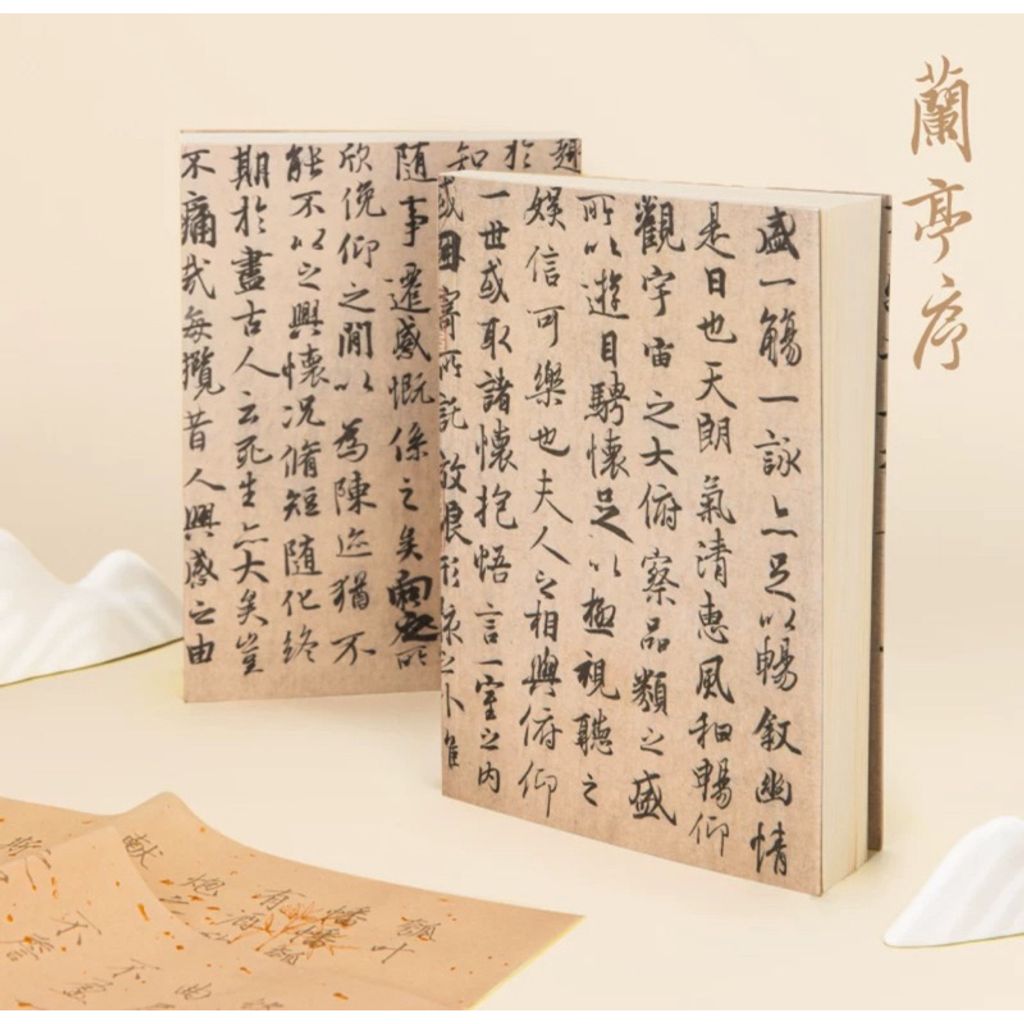 蘭亭序
盛一觴一詠亦足以暢叙幽情
是日也天朗氣清惠風和暢仰
觀宇宙之大俯察品類之盛
所以遊目騁懷足以極視聽之
娛信可樂也夫人之相與俯仰
一世或取諸懷抱悟言一室之内
或因寄所託放浪形骸之外雖
趣
於
知
隨事遷感慨係之矣向之所
欣俛仰之間以為陳迹猶不
能不以之興懷況脩短隨化終
期於盡古人云死生亦大矣豈
不痛哉每攬昔人興感之由
瓠叶
幡幡瓠
有酒
炮之
献